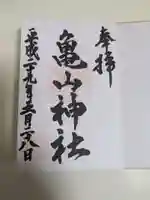 奉拝
亀山神社
平成二十九年三月二八日